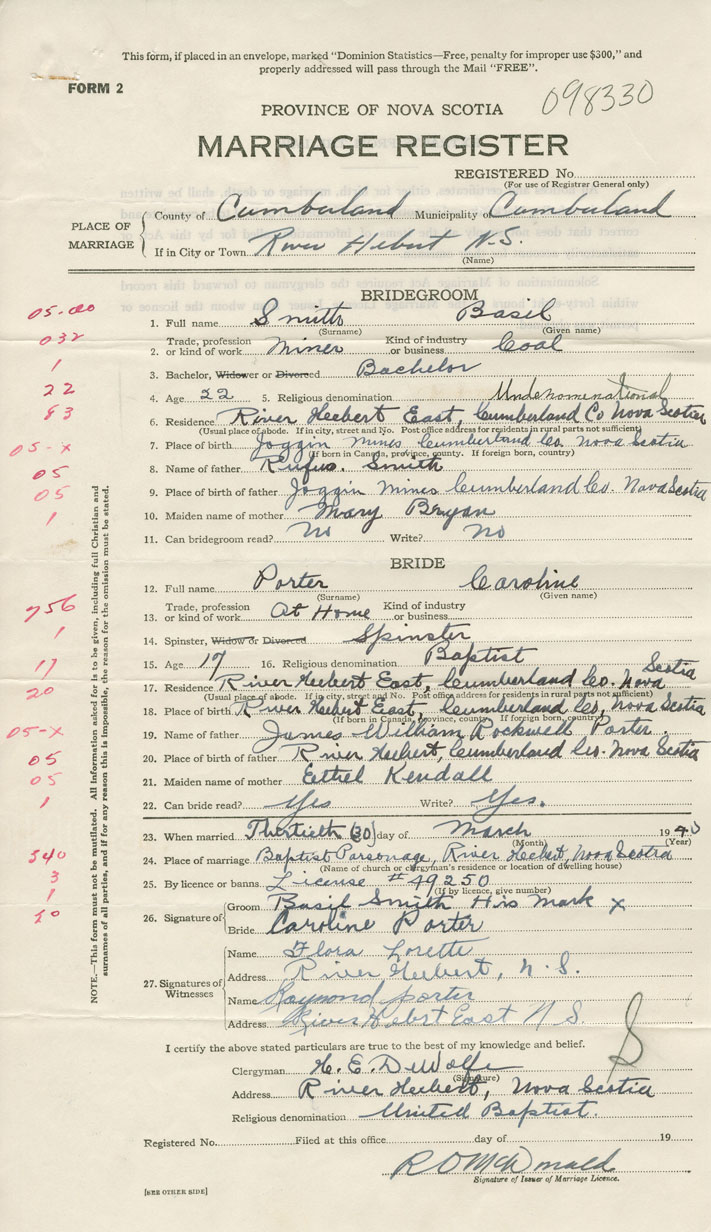 This form, if placed in an envelope, marked "Dominion Statistics—Free, penalty for improper use $300," and
properly addressed will pass through the Mail "FREE".
FORM 2
098330
PROVINCE OF NOVA SCOTIA
MARRIAGE REGISTER
REGISTERED No.
(For use of Registrar General only)
PLACE OF MARRIAGE
County of Cumberland Municipality of Cumberland
If in City or Town River Hebert N.S.
(Name)
BRIDEGROOM
05-00
1. Full name Smith Basil
(Surname) (Given name)
032
2. Trade, profession or kind of work Miner Kind of industry or business Coal
1
3. Bachelor, Widower or Divorced Bachelor
22
4. Age 22 5. Religious denomination Undenominational
83
6. Residence River Heebert East, Cumberland Co Nova Scotia
(Usual place of abode. If in city, street and No. Post office address for residents in rural parts not sufficient)
05-x
7. Place of birth Joggin Mines Cumberland Co. Nova Scotia
(If born in Canada, province, county. If foreign born, country)
05
8. Name of father Rufus. Smith
05
9. Place of birth of father Joggin Mines Cumberland Co. Nova Scotia
1
10. Maiden name of mother Mary Bryan
11. Can bridegroom read? No Write? No
BRIDE
12. Full name Porter Caroline
(Surname) (Given name)
756
13. Trade, profession or kind of work At Home Kind of industry or business
1
14. Spinster, Widow or Divorced Spinster
17
15. Age 17 16. Religious denomination Baptist
20
17. Residence River Heebert East, Cumberland Co. Nova Scotia
(Usual place of abode. If in city, street and No. Post office address for residents in rural parts not sufficient)
05-x
18. Place of birth River Heebert East, Cumberland Co, Nova Scotia
(If born in Canada, province, county. If foreign born, country)
19. Name of father James William Rockwell Porter
05
20. Place of birth of father River Heebert, Cumberland Co. Nova Scotia
05
21. Maiden name of mother Eethel Kendall
1
22. Can bride read? Yes Write? Yes.
23. When married Thirtieth (30) day of March 1940
(Month) (Year)
540
24. Place of marriage Baptist Parsonage, River Heebert, Nova Scotia
(Name of church or clergyman's residence or location of dwelling house)
3
25. By licence or banns License #49250
(If by licence, give number)
1
10
26. Signature of
Groom Basil Smith His Mark x
Bride Caroline Porter
27. Signatures of Witnesses
Name Flora Lorette
Address River Heebert, N.S.
Name Raymond Porter
Address River Hebert East N S.
NOTE.—This form must not be mutilated. All Information asked for is to be given, including full Christian and
surnames of all parties, and if for any reason this is impossible, the reason for the omission must be stated.
I certify the above stated particulars are true to the best of my knowledge and belief.
Clergyman H. E. DeWolfe
(Signature)
Address River Heebert, Nova Scotia
Religious denomination United Baptist.
Registered No. Filed at this office day of 19
R O McDonald
Signature of Issuer of Marriage Licence.
[SEE OTHER SIDE]